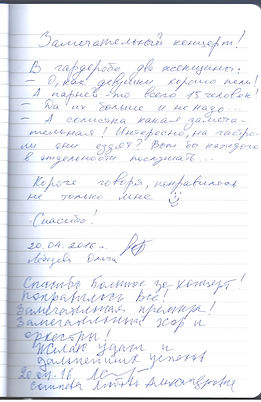 Замечательный концерт!
В гардеробе две женщины:
– О, как девушки хорошо пели!
А парней-то всего 15 человек!
– Да их больше и не надо...
– А солистка какая замеча-
тельная! Интересно, на гастро-
ли они ездят? Вот бы каждого
в отдельности послушать...
Короче говоря, понравилось
не только мне
Спасибо!
20.04.2016г.
Лебедева Ольга
Спасибо большое за концерт!
Понравилось Всё!
Замечательная премьера!
Замечательный хор и
оркестры!
Желаю удачи и
дальнейших успехов
20.04.16
Александровна